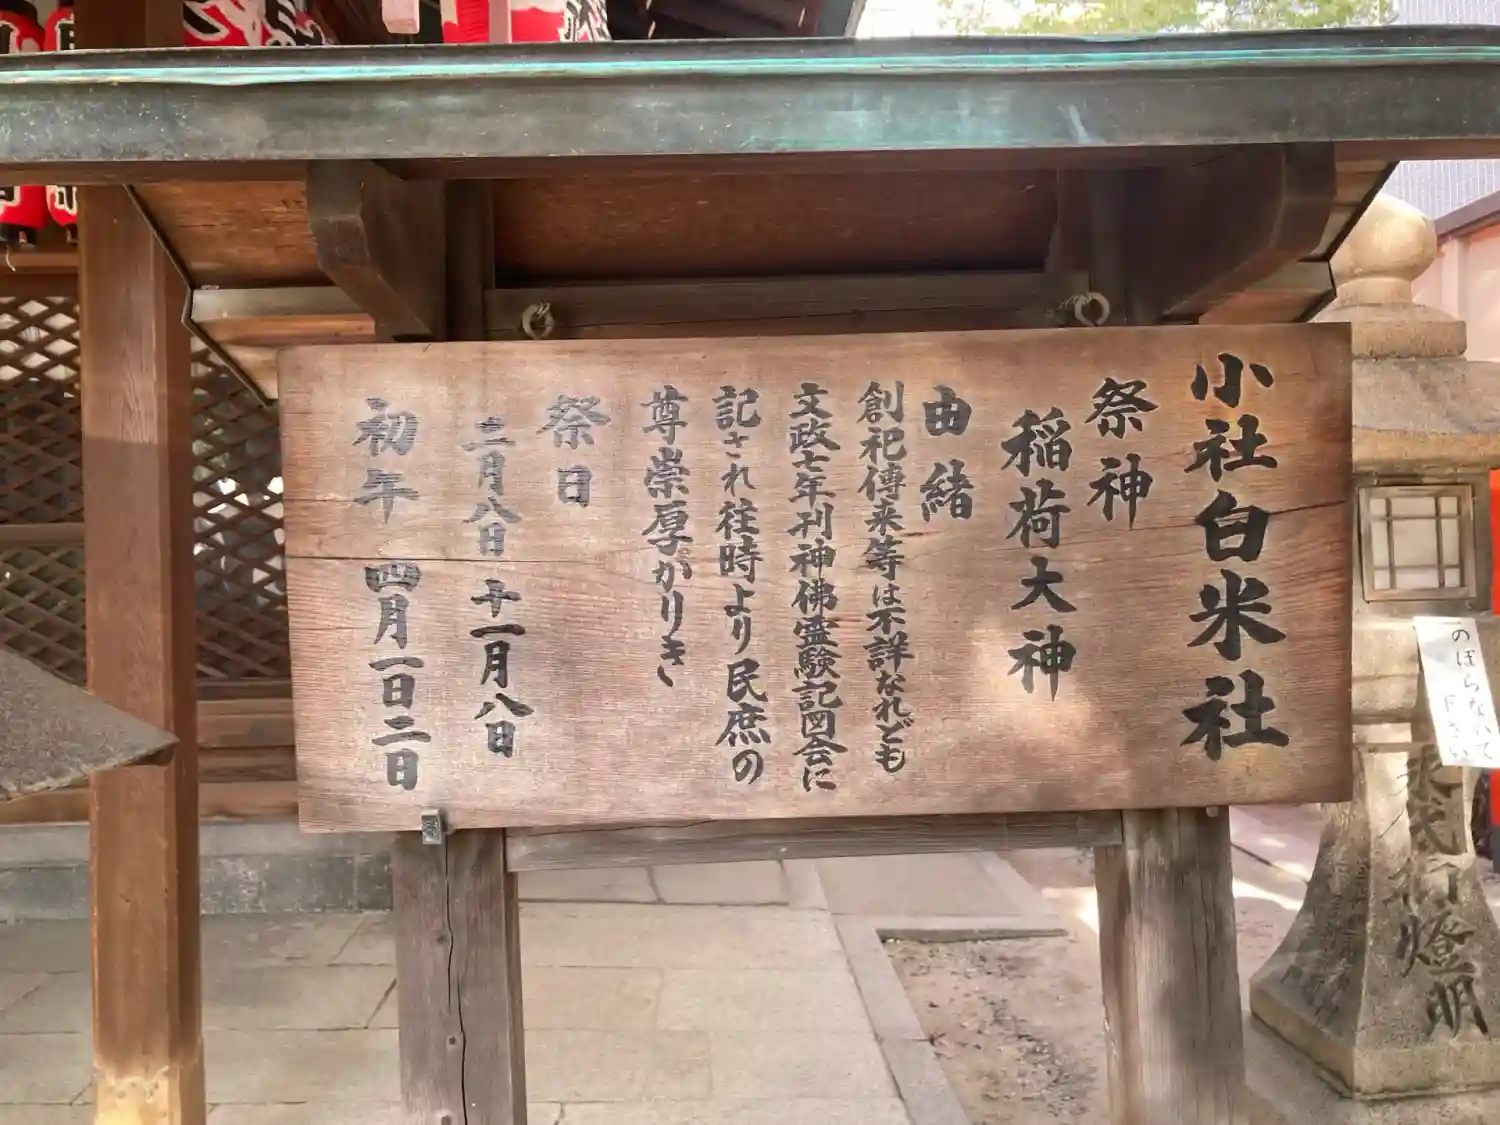 小社白米社
祭神
稲荷大神
由緒
創祀傳来等は不詳なれども
文政七年刊神佛霊験記図会に
記され往時より民庶の
尊崇厚かりき
祭日
二月八日 十一月八日
初午 四月一日二日
のぼらないで
下さい
燈明